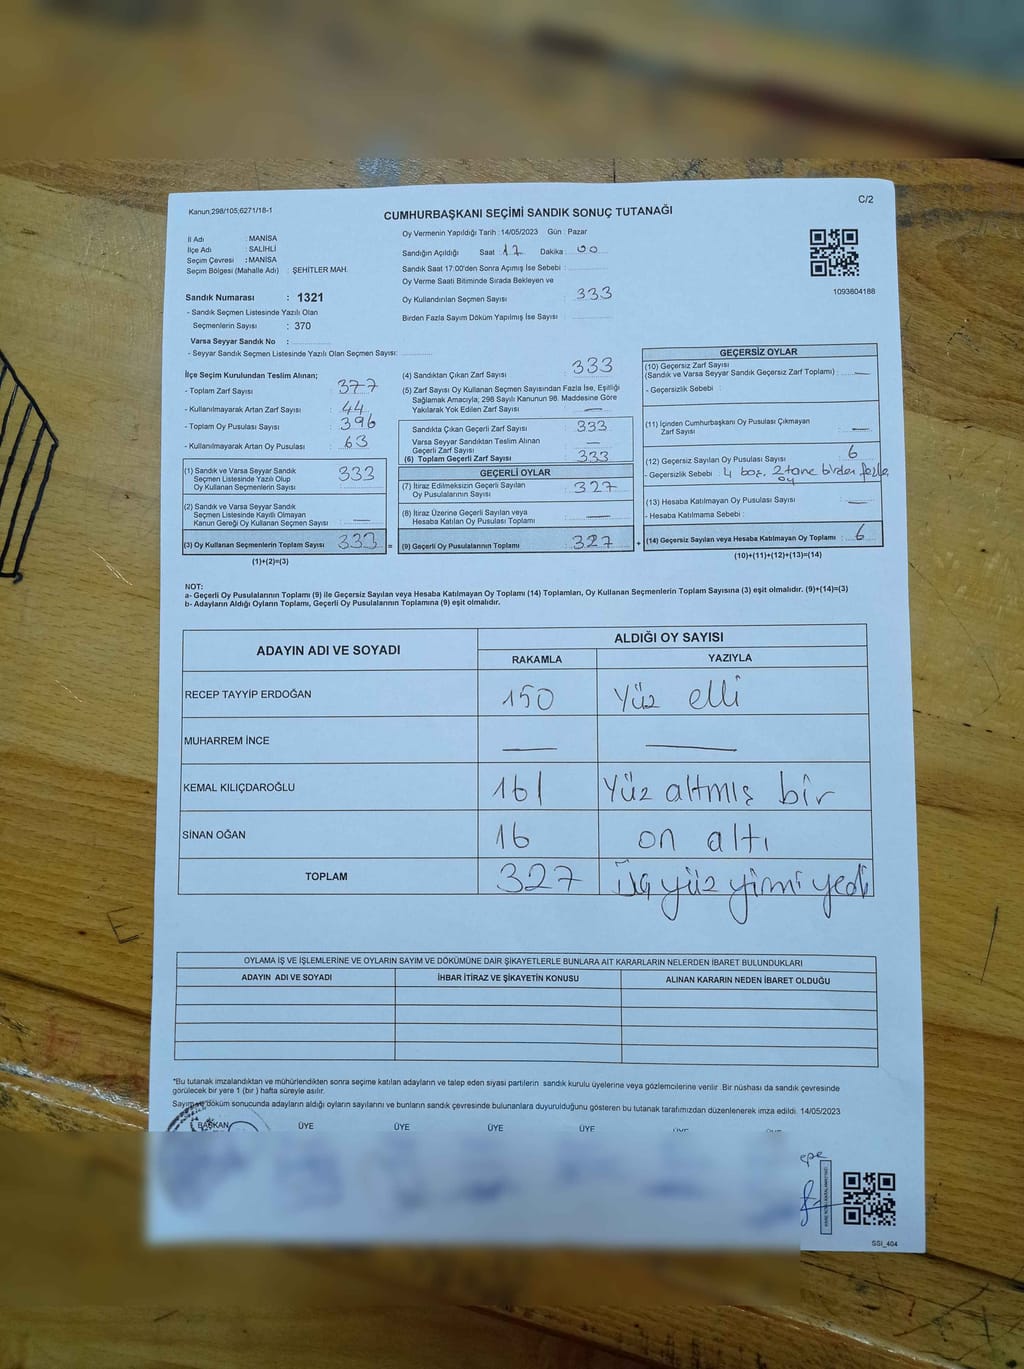 Kanun;298/105;6271/18-1
C/2
CUMHURBAŞKANI SEÇİMİ SANDIK SONUÇ TUTANAĞI
İl Adı : MANİSA
İlçe Adı : SALİHLİ
Seçim Çevresi : MANİSA
Seçim Bölgesi (Mahalle Adı) : ŞEHİTLER MAH.
Sandık Numarası : 1321
- Sandık Seçmen Listesinde Yazılı Olan
Seçmenlerin Sayısı : 370
Varsa Seyyar Sandık No :
- Seyyar Sandık Seçmen Listesinde Yazılı Olan Seçmen Sayısı:
Oy Vermenin Yapıldığı Tarih : 14/05/2023 Gün : Pazar
Sandığın Açıldığı Saat : 17 Dakika : 00
Sandık Saat 17:00'den Sonra Açımış İse Sebebi :
Oy Verme Saati Bitiminde Sırada Bekleyen ve
Oy Kullandırılan Seçmen Sayısı : 333
Birden Fazla Sayım Döküm Yapılmış İse Sayısı :
1093804188
İlçe Seçim Kurulundan Teslim Alınan;
- Toplam Zarf Sayısı : 377
- Kullanılmayarak Artan Zarf Sayısı : 44
- Toplam Oy Pusulası Sayısı : 396
- Kullanılmayarak Artan Oy Pusulası : 63
(1) Sandık ve Varsa Seyyar Sandık
Seçmen Listesinde Yazılı Olup
Oy Kullanan Seçmenlerin Sayısı : 333
(2) Sandık ve Varsa Seyyar Sandık
Seçmen Listesinde Kayıtlı Olmayan
Kanun Gereği Oy Kullanan Seçmen Sayısı : —
(3) Oy Kullanan Seçmenlerin Toplam Sayısı : 333 =
(1)+(2)=(3)
(4) Sandıktan Çıkan Zarf Sayısı : 333
(5) Zarf Sayısı Oy Kullanan Seçmen Sayısından Fazla İse, Eşitliği
Sağlamak Amacıyla; 298 Sayılı Kanunun 98. Maddesine Göre
Yakılarak Yok Edilen Zarf Sayısı : —
Sandıkta Çıkan Geçerli Zarf Sayısı : 333
Varsa Seyyar Sandıktan Teslim Alınan
Geçerli Zarf Sayısı : —
(6) Toplam Geçerli Zarf Sayısı : 333
GEÇERLİ OYLAR
(7) İtiraz Edilmeksizin Geçerli Sayılan
Oy Pusulalarının Sayısı : 327
(8) İtiraz Üzerine Geçerli Sayılan veya
Hesaba Katılan Oy Pusulası Toplamı : —
(9) Geçerli Oy Pusulalarının Toplamı : 327 +
GEÇERSİZ OYLAR
(10) Geçersiz Zarf Sayısı
(Sandık ve Varsa Seyyar Sandık Geçersiz Zarf Toplamı) : —
- Geçersizlik Sebebi :
(11) İçinden Cumhurbaşkanı Oy Pusulası Çıkmayan
Zarf Sayısı : —
(12) Geçersiz Sayılan Oy Pusulası Sayısı : 6
- Geçersizlik Sebebi : 4 boş. 2 tane birden fazla
oy
(13) Hesaba Katılmayan Oy Pusulası Sayısı : —
- Hesaba Katılmama Sebebi :
(14) Geçersiz Sayılan veya Hesaba Katılmayan Oy Toplamı : 6
(10)+(11)+(12)+(13)=(14)
NOT:
a- Geçerli Oy Pusulalarının Toplamı (9) ile Geçersiz Sayılan veya Hesaba Katılmayan Oy Toplamı (14) Toplamları, Oy Kullanan Seçmenlerin Toplam Sayısına (3) eşit olmalıdır. (9)+(14)=(3)
b- Adayların Aldığı Oyların Toplamı, Geçerli Oy Pusulalarının Toplamına (9) eşit olmalıdır.
ADAYIN ADI VE SOYADI ALDIĞI OY SAYISI
RAKAMLA YAZIYLA
RECEP TAYYİP ERDOĞAN 150 Yüz elli
MUHARREM İNCE — —
KEMAL KILIÇDAROĞLU 161 Yüz altmış bir
SİNAN OĞAN 16 on altı
TOPLAM 327 Üç yüz yirmi yedi
OYLAMA İŞ VE İŞLEMLERİNE VE OYLARIN SAYIM VE DÖKÜMÜNE DAİR ŞİKAYETLERLE BUNLARA AİT KARARLARIN NELERDEN İBARET BULUNDUKLARI
ADAYIN ADI VE SOYADI İHBAR İTİRAZ VE ŞİKAYETİN KONUSU ALINAN KARARIN NEDEN İBARET OLDUĞU
*Bu tutanak imzalandıktan ve mühürlendikten sonra seçime katılan adayların ve talep eden siyasi partilerin sandık kurulu üyelerine veya gözlemcilerine verilir. Bir nüshası da sandık çevresinde
görülecek bir yere 1 (bir ) hafta süreyle asılır.
Sayım ve döküm sonucunda adayların aldığı oyların sayılarını ve bunların sandık çevresinde bulunanlara duyurulduğunu gösteren bu tutanak tarafımızdan düzenlenerek imza edildi. 14/05/2023
BAŞKAN ÜYE ÜYE ÜYE ÜYE
epe
SSI_404